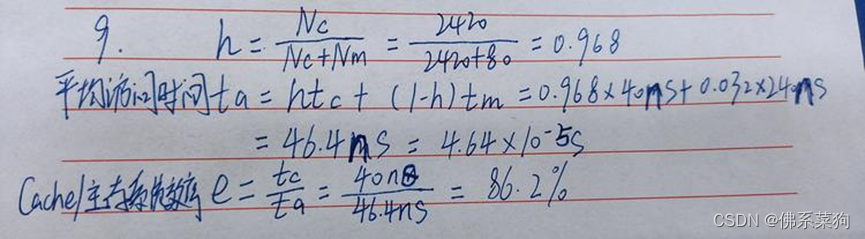 9. h = Nc / (Nc+Nm) = 2420 / (2420+80) = 0.968
平均访问时间 ta = htc + (1-h) tm = 0.968×40ns+0.032×240ns
= 46.4ns = 4.64×10⁻⁵s
Cache/主存系统效率 e = tc / ta = 40ns / 46.4ns = 86.2%
CSDN @佛系菜狗